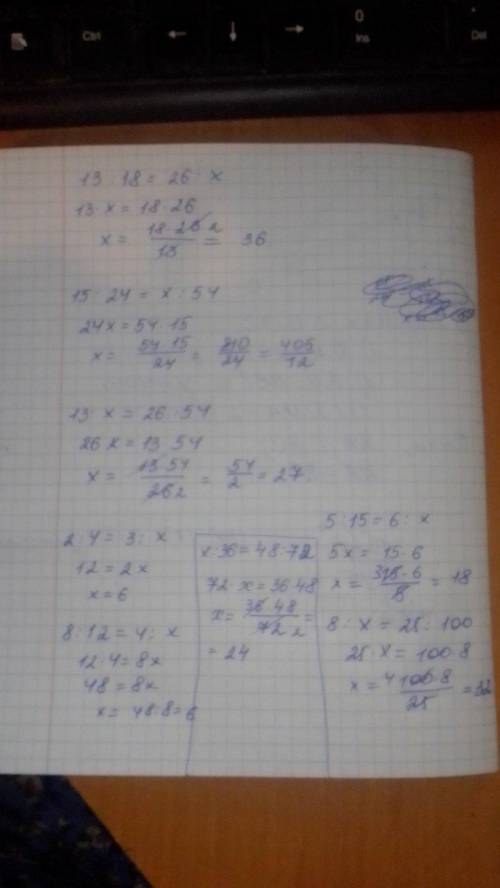 Ctrl
←
↓
→
0
Ins
Del
13 : 18 = 26 : x
13 · x = 18 · 26
x = 18 · 26 2 / 13 = 36
15 : 24 = x : 54
24x = 54 · 15
x = 54 · 15 / 24 = 810 / 24 = 405 / 12
13 : x = 26 : 54
26 x = 13 · 54
x = 13 · 54 / 26 2 = 54 / 2 = 27
2 : 4 = 3 : x
12 = 2x
x = 6
8 : 12 = 4 : x
12 · 4 = 8x
48 = 8x
x = 48 : 8 = 6
x : 36 = 48 : 72
72 · x = 36 · 48
x = 36 · 48 / 72 2 =
= 24
5 : 15 = 6 : x
5x = 15 · 6
x = 3 15 · 6 / 5 = 18
8 : x = 25 : 100
25 · x = 100 · 8
x = 4 100 · 8 / 25 = 32